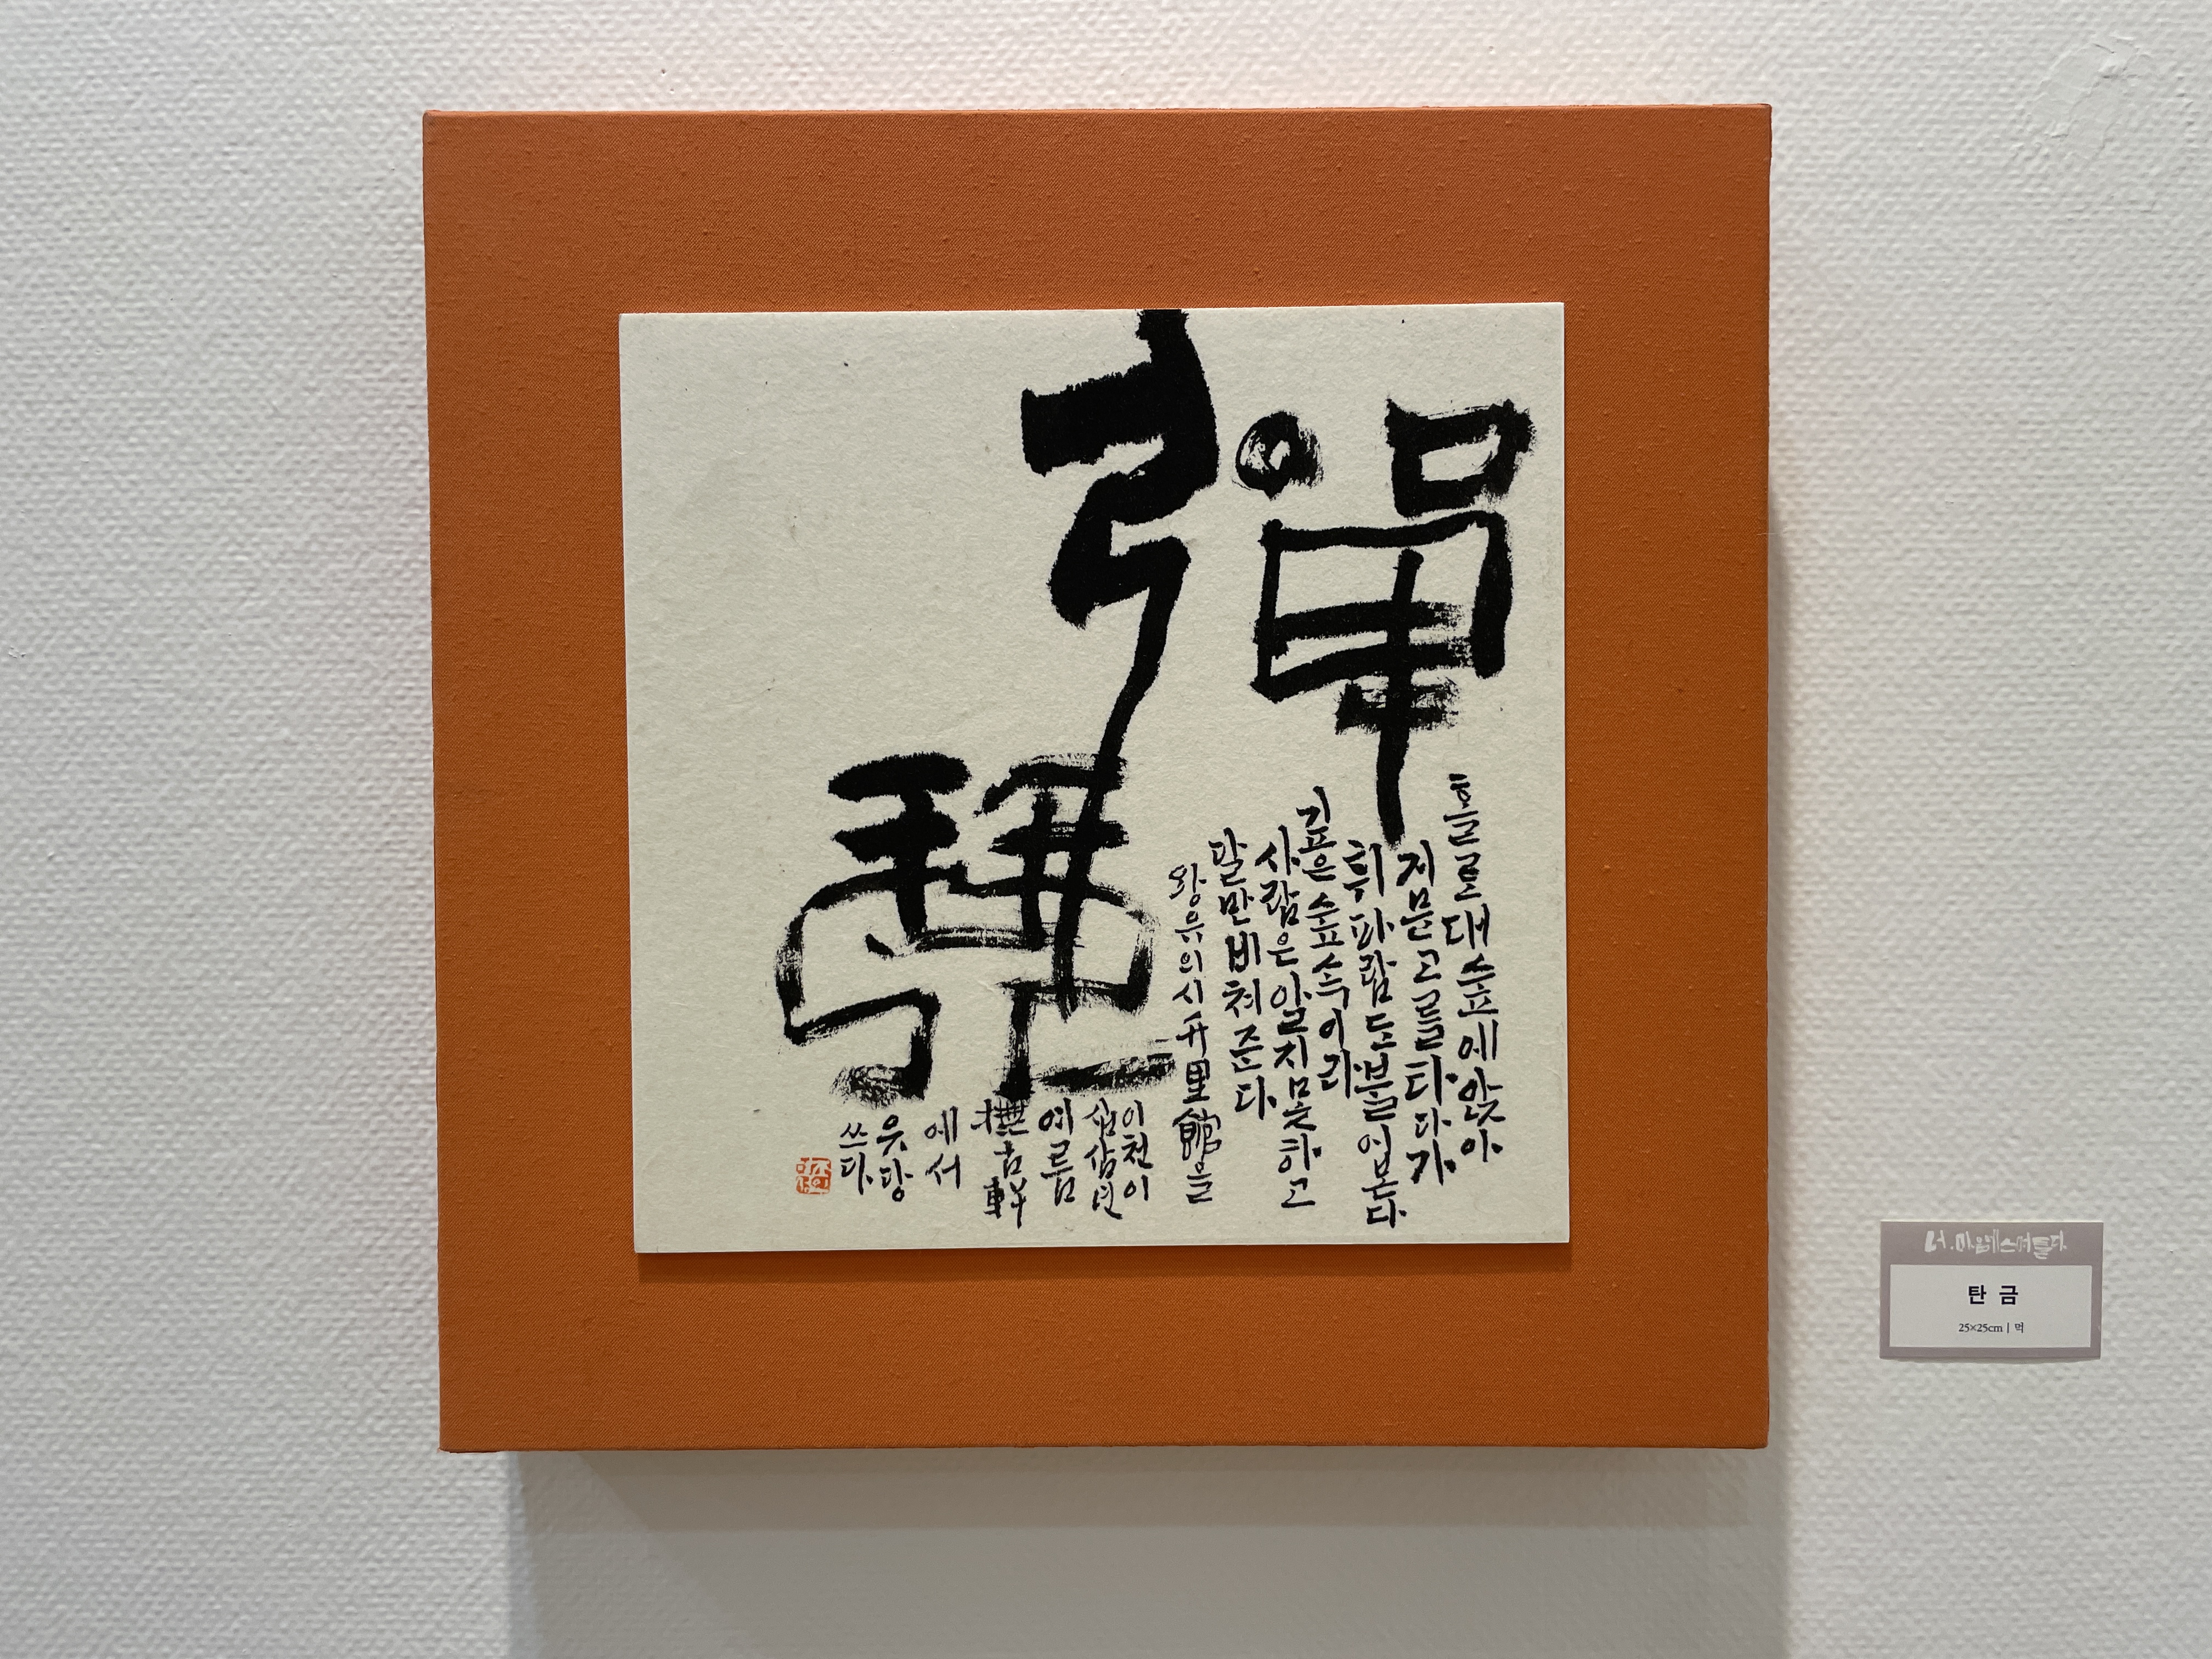 彈
琴
홀로대숲에앉아
거문고를타다가
휘파람도불어본다
깊은숲속이라
사람은알지못하고
달만비쳐준다
왕유의시竹里館을
이천이
십삼년
여름
撫古軒
에서
쓰다
너.마음에스며들다.
탄 금
25×25cm | 먹